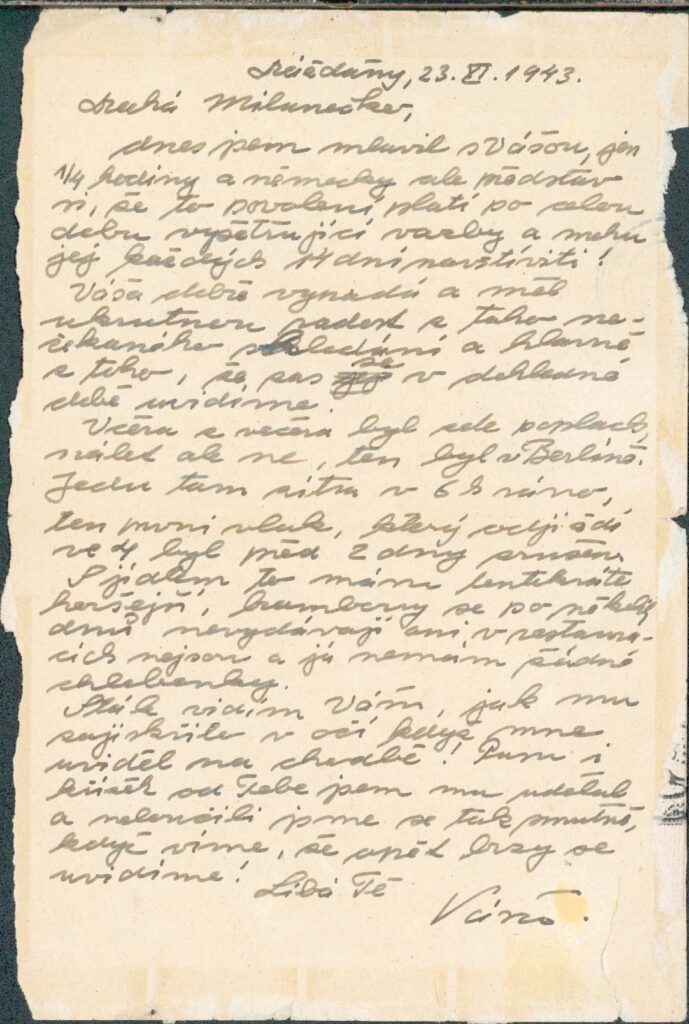 Drážďany, 23. XI. 1943.
Drahá Milunečko,
dnes jsem mluvil s Vášou, jen
1/4 hodiny a německy ale představ
si, že to povolení platí po celou
dobu vyšetřující vazby a mohu
jej každých 14 dní navštíviti!
Váša dobře vypadá a měl
ukrutnou radost z toho ne-
čekaného shledání a hlavně
z toho, že zas se v dohledné
době uvidíme.
Včera z večera byl zde poplach,
nálet ale ne, ten byl v Berlíně.
Jedu tam zítra v 6 h ráno,
ten první vlak, který odjíždí
ve 4 byl před 2 dny zrušen.
S jídlem to mám tentokráte
horšejší, brambory se po několik
dnů nevydávají ani v restaura-
cích nejsou a já nemám žádné
chlebenky.
Stále vidím Vášu, jak mu
zajiskřilo v očí když mne
uviděl na chodbě! Pusu i
křížek od Tebe jsem mu udělal
a neloučili jsme se tak smutně,
když víme, že opět brzy se
uvidíme!
Líbá Tě